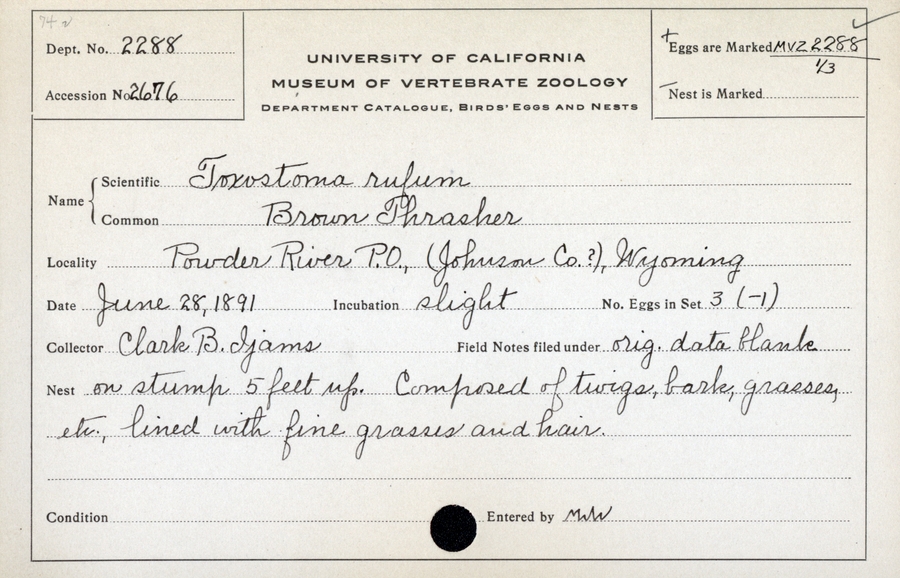 74 v
Dept. No. 2288
Accession No. 2676
UNIVERSITY OF CALIFORNIA
MUSEUM OF VERTEBRATE ZOOLOGY
DEPARTMENT CATALOGUE, BIRDS' EGGS AND NESTS
+ Eggs are Marked MVZ 2288
1/3
– Nest is Marked
Name { Scientific Toxostoma rufum
Common Brown Thrasher
Locality Powder River P.O., (Johnson Co.?), Wyoming
Date June 28, 1891 Incubation slight No. Eggs in Set 3 (-1)
Collector Clark B. Ijams Field Notes filed under orig. data blank
Nest on stump 5 feet up. Composed of twigs, bark, grasses,
etc., lined with fine grasses and hair.
Condition Entered by